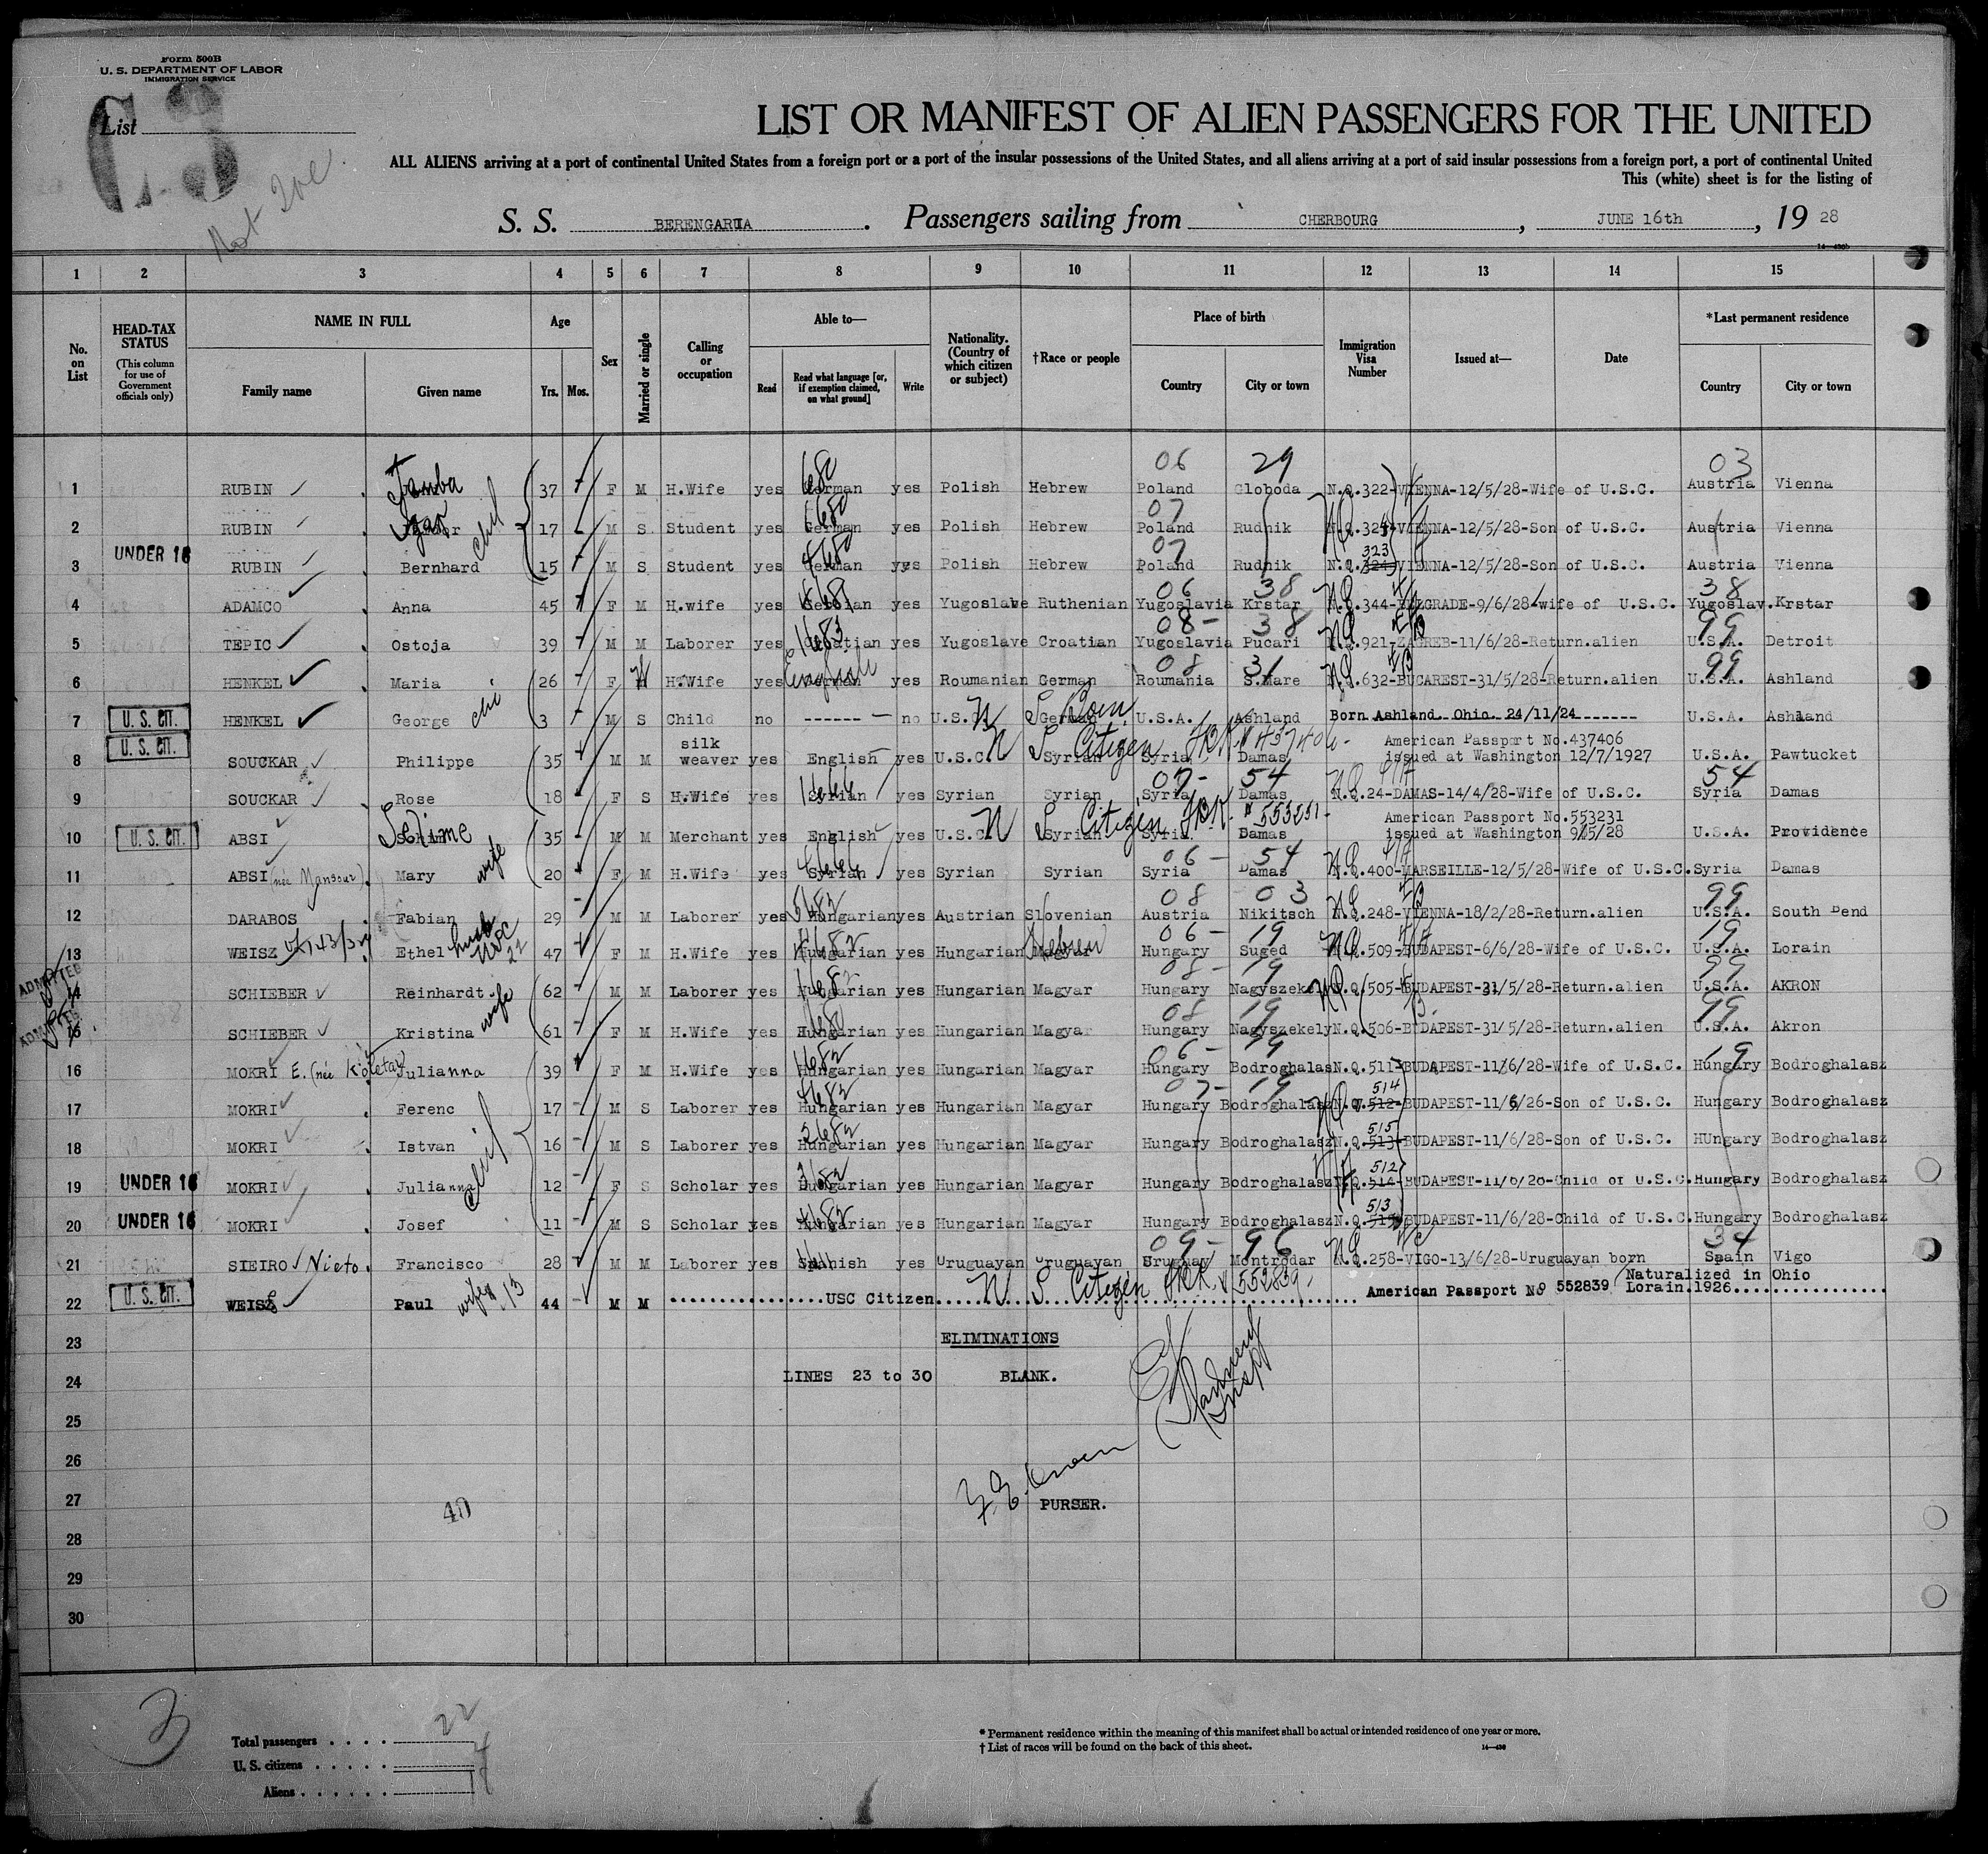 Form 500B
U. S. DEPARTMENT OF LABOR
IMMIGRATION SERVICE
C3
List
LIST OR MANIFEST OF ALIEN PASSENGERS FOR THE UNITED
ALL ALIENS arriving at a port of continental United States from a foreign port or a port of the insular possessions of the United States, and all aliens arriving at a port of said insular possessions from a foreign port, a port of continental United
This (white) sheet is for the listing of
S. S. BERENGARIA. Passengers sailing from CHERBOURG, JUNE 16th, 19 28
14—430b
1 2 3 4 5 6 7 8 9 10 11 12 13 14 15
No. on List
HEAD-TAX STATUS (This column for use of Government officials only)
NAME IN FULL Family name Given name
Age Yrs. Mos.
Sex
Married or single
Calling or occupation
Able to— Read Read what language [or, if exemption claimed, on what ground] Write
Nationality. (Country of which citizen or subject)
†Race or people
Place of birth Country City or town
Immigration Visa Number
Issued at—
Date
*Last permanent residence Country City or town
06 29 03
1 RUBIN 37 F M H.Wife yes German yes Polish Hebrew Poland Globoda N.Q.322-VIENNA-12/5/28-Wife of U.S.C. Austria Vienna
2 RUBIN 17 M S Student yes German yes Polish Hebrew Poland Rudnik VIENNA-12/5/28-Son of U.S.C. Austria Vienna
3 UNDER 16 RUBIN Bernhard 15 M S Student yes German yes Polish Hebrew Poland Rudnik N.Q. 323 VIENNA-12/5/28-Son of U.S.C. Austria Vienna
4 ADAMCO Anna 45 F M H.wife yes Serbian yes Yugoslave Ruthenian Yugoslavia Krstar N.Q.344-BELGRADE-9/6/28-wife of U.S.C. Yugoslav. Krstar
5 TEPIC Ostoja 39 M M Laborer yes Croatian yes Yugoslave Croatian Yugoslavia Pucari N.Q.921-ZAGREB-11/6/28-Return.alien U.S.A. Detroit
6 HENKEL Maria 26 F W H.Wife yes English yes Roumanian German Roumania S.Mare N.Q.632-BUCAREST-31/5/28-Return.alien U.S.A. Ashland
7 U. S. CIT. HENKEL George 3 M S Child no ------ no U.S. German U.S.A. Ashland Born Ashland Ohio 24/11/24------- U.S.A. Ashland
8 U. S. CIT. SOUCKAR Philippe 35 M M silk weaver yes English yes U.S.C. Syrian Citizen 437406 Syria Damas American Passport No.437406 issued at Washington 12/7/1927 U.S.A. Pawtucket
9 SOUCKAR Rose 18 F S H.Wife yes Syrian yes Syrian Syrian Syria Damas N.Q.24-DAMAS-14/4/28-Wife of U.S.C. Syria Damas
10 U. S. CIT. ABSI Selime 35 M M Merchant yes English yes U.S.C. Syrian Citizen Syria Damas American Passport No.553231 issued at Washington U.S.A. Providence
11 ABSI (née Mansour) Mary wife 20 F M H.Wife yes Syrian yes Syrian Syrian Syria Damas N.Q.400-MARSEILLE-12/5/28-Wife of U.S.C. Syria Damas
12 DARABOS Fabian 29 M M Laborer yes Hungarian yes Austrian Slovenian Austria Nikitsch N.Q.248-VIENNA-18/2/28-Return.alien U.S.A. South Bend
13 WEISZ Ethel 47 F M H.Wife yes Hungarian yes Hungarian Hebrew Hungary Suged N.Q.509-BUDAPEST-6/6/28-Wife of U.S.C. U.S.A. Lorain
ADMITTED
14 SCHIEBER Reinhardt wife 62 M M Laborer yes Hungarian yes Hungarian Magyar Hungary Nagyszekely N.Q.505-BUDAPEST-31/5/28-Return.alien U.S.A. AKRON
ADMITTED
15 SCHIEBER Kristina 61 F M H.Wife yes Hungarian yes Hungarian Magyar Hungary Nagyszekely N.Q.506-BUDAPEST-31/5/28-Return.alien U.S.A. Akron
16 MOKRI E. Julianna 39 F M H.Wife yes Hungarian yes Hungarian Magyar Hungary Bodroghalas N.Q.511-BUDAPEST-11/6/28-Wife of U.S.C. Hungary Bodroghalasz
17 MOKRI Ferenc 17 M S Laborer yes Hungarian yes Hungarian Magyar Hungary Bodroghalasz 514 512-BUDAPEST-11/6/26-Son of U.S.C. Hungary Bodroghalasz
18 MOKRI Istvan 16 M S Laborer yes Hungarian yes Hungarian Magyar Hungary Bodroghalasz N.Q. 515 513-BUDAPEST-11/6/28-Son of U.S.C. HUngary Bodroghalasz
19 UNDER 16 MOKRI Julianna 12 F S Scholar yes Hungarian yes Hungarian Magyar Hungary Bodroghalasz 512 514-BUDAPEST-11/6/28-Child of U.S.C. Hungary Bodroghalasz
20 UNDER 16 MOKRI Josef 11 M S Scholar yes Hungarian yes Hungarian Magyar Hungary Bodroghalasz N.Q. 513 515 BUDAPEST-11/6/28-Child of U.S.C. Hungary Bodroghalasz
21 SIEIRO Nieto. Francisco 28 M M Laborer yes Spanish yes Uruguayan Uruguayan Uruguay Montrodar N.Q.258-VIGO-13/6/28-Uruguayan born Spain Vigo
22 U. S. CIT. WEISZ Paul 44 M M USC Citizen Citizen 552839 American Passport No 552839 Naturalized in Ohio Lorain.1926
23 ELIMINATIONS
24 LINES 23 to 30 BLANK.
25
26
27 PURSER.
40
28
29
30
3
Total passengers 22
U. S. citizens 4
Aliens
* Permanent residence within the meaning of this manifest shall be actual or intended residence of one year or more.
† List of races will be found on the back of this sheet.
14—430